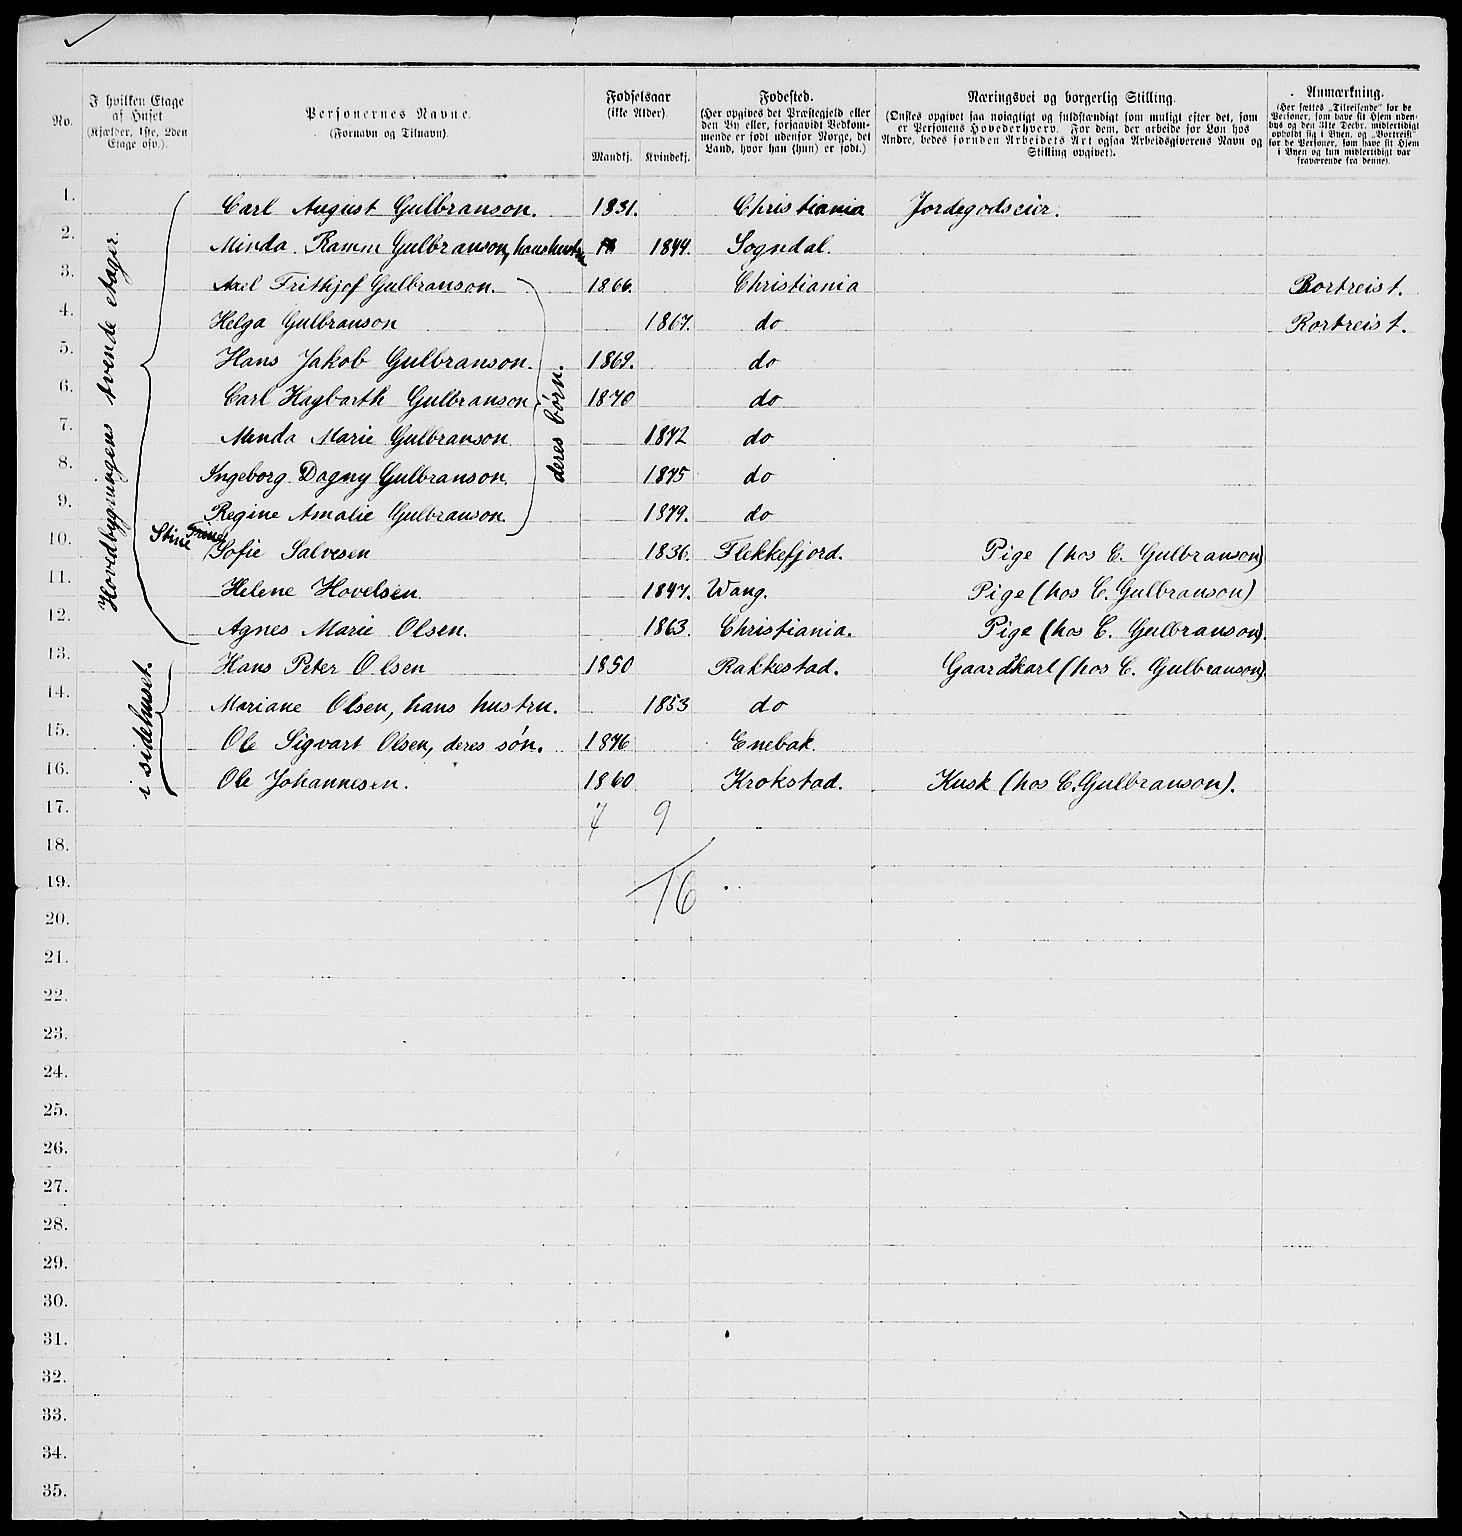 No.
I hvilken Etage af Huset (Kjælder, 1ste, 2den Etage osv.).
Personernes Navne. (Fornavn og Tilnavn).
Fødselsaar (ikke Alder).
Mandkj. Kvindekj.
Fødested. (Her opgives det Præstegjeld eller den By eller, forsaavidt Vedkommende er født udenfor Norge, det Land, hvor han (hun) er født.)
Næringsvei og borgerlig Stilling. (Ønskes opgivet saa nøiagtigt og fuldstændigt som muligt efter det, som er Personens Hovederhverv. For dem, der arbeide for Løn hos Andre, bedes foruden Arbeidets Art ogsaa Arbeidsgiverens Navn og Stilling opgivet).
Anmærkning. (Her sættes „Tilreisende" for de Personer, som have sit Hjem udenbys og den 31te Decbr. midlertidigt opholdt sig i Byen, og „Bortreist" for de Personer, som have sit Hjem i Byen og kun midlertidigt var fraværende fra denne).
Hovedbygningens tvende etager.
1. Carl August Gulbranson. 1831. Christiania Jordegodseier.
2. Minda Ramm Gulbranson, hans hustru 1844. Sogndal.
3. Axel Frithjof Gulbranson. 1866. Christiania Bortreist.
4. Helga Gulbranson 1867. do Bortreist.
5. Hans Jakob Gulbranson. 1869. do
6. Carl Hagbarth Gulbranson 1870 do
deres børn.
7. Minda Marie Gulbranson 1872 do
8. Ingeborg Dagny Gulbranson. 1875 do
9. Regine Amalie Gulbranson. 1879. do
10. Stine Trine Sofie Salvesen 1836. Flekkefjord. Pige (hos C. Gulbranson)
11. Helene Hovelsen 1847. Wang. Pige (hos C. Gulbranson)
12. Agnes Marie Olsen. 1863. Christiania. Pige (hos C. Gulbranson).
i sidehuset.
13. Hans Peter Olsen 1850 Rakkestad. Gaardskarl (hos C. Gulbranson).
14. Mariane Olsen, hans hustru. 1853 do
15. Ole Sigvart Olsen, deres søn. 1876 Enebak.
16. Ole Johannesen. 1860 Krokstad. Kusk (hos C. Gulbranson).
17. 7 9
18.
19. 16
20.
21.
22.
23.
24.
25.
26.
27.
28.
29.
30.
31.
32.
33.
34.
35.